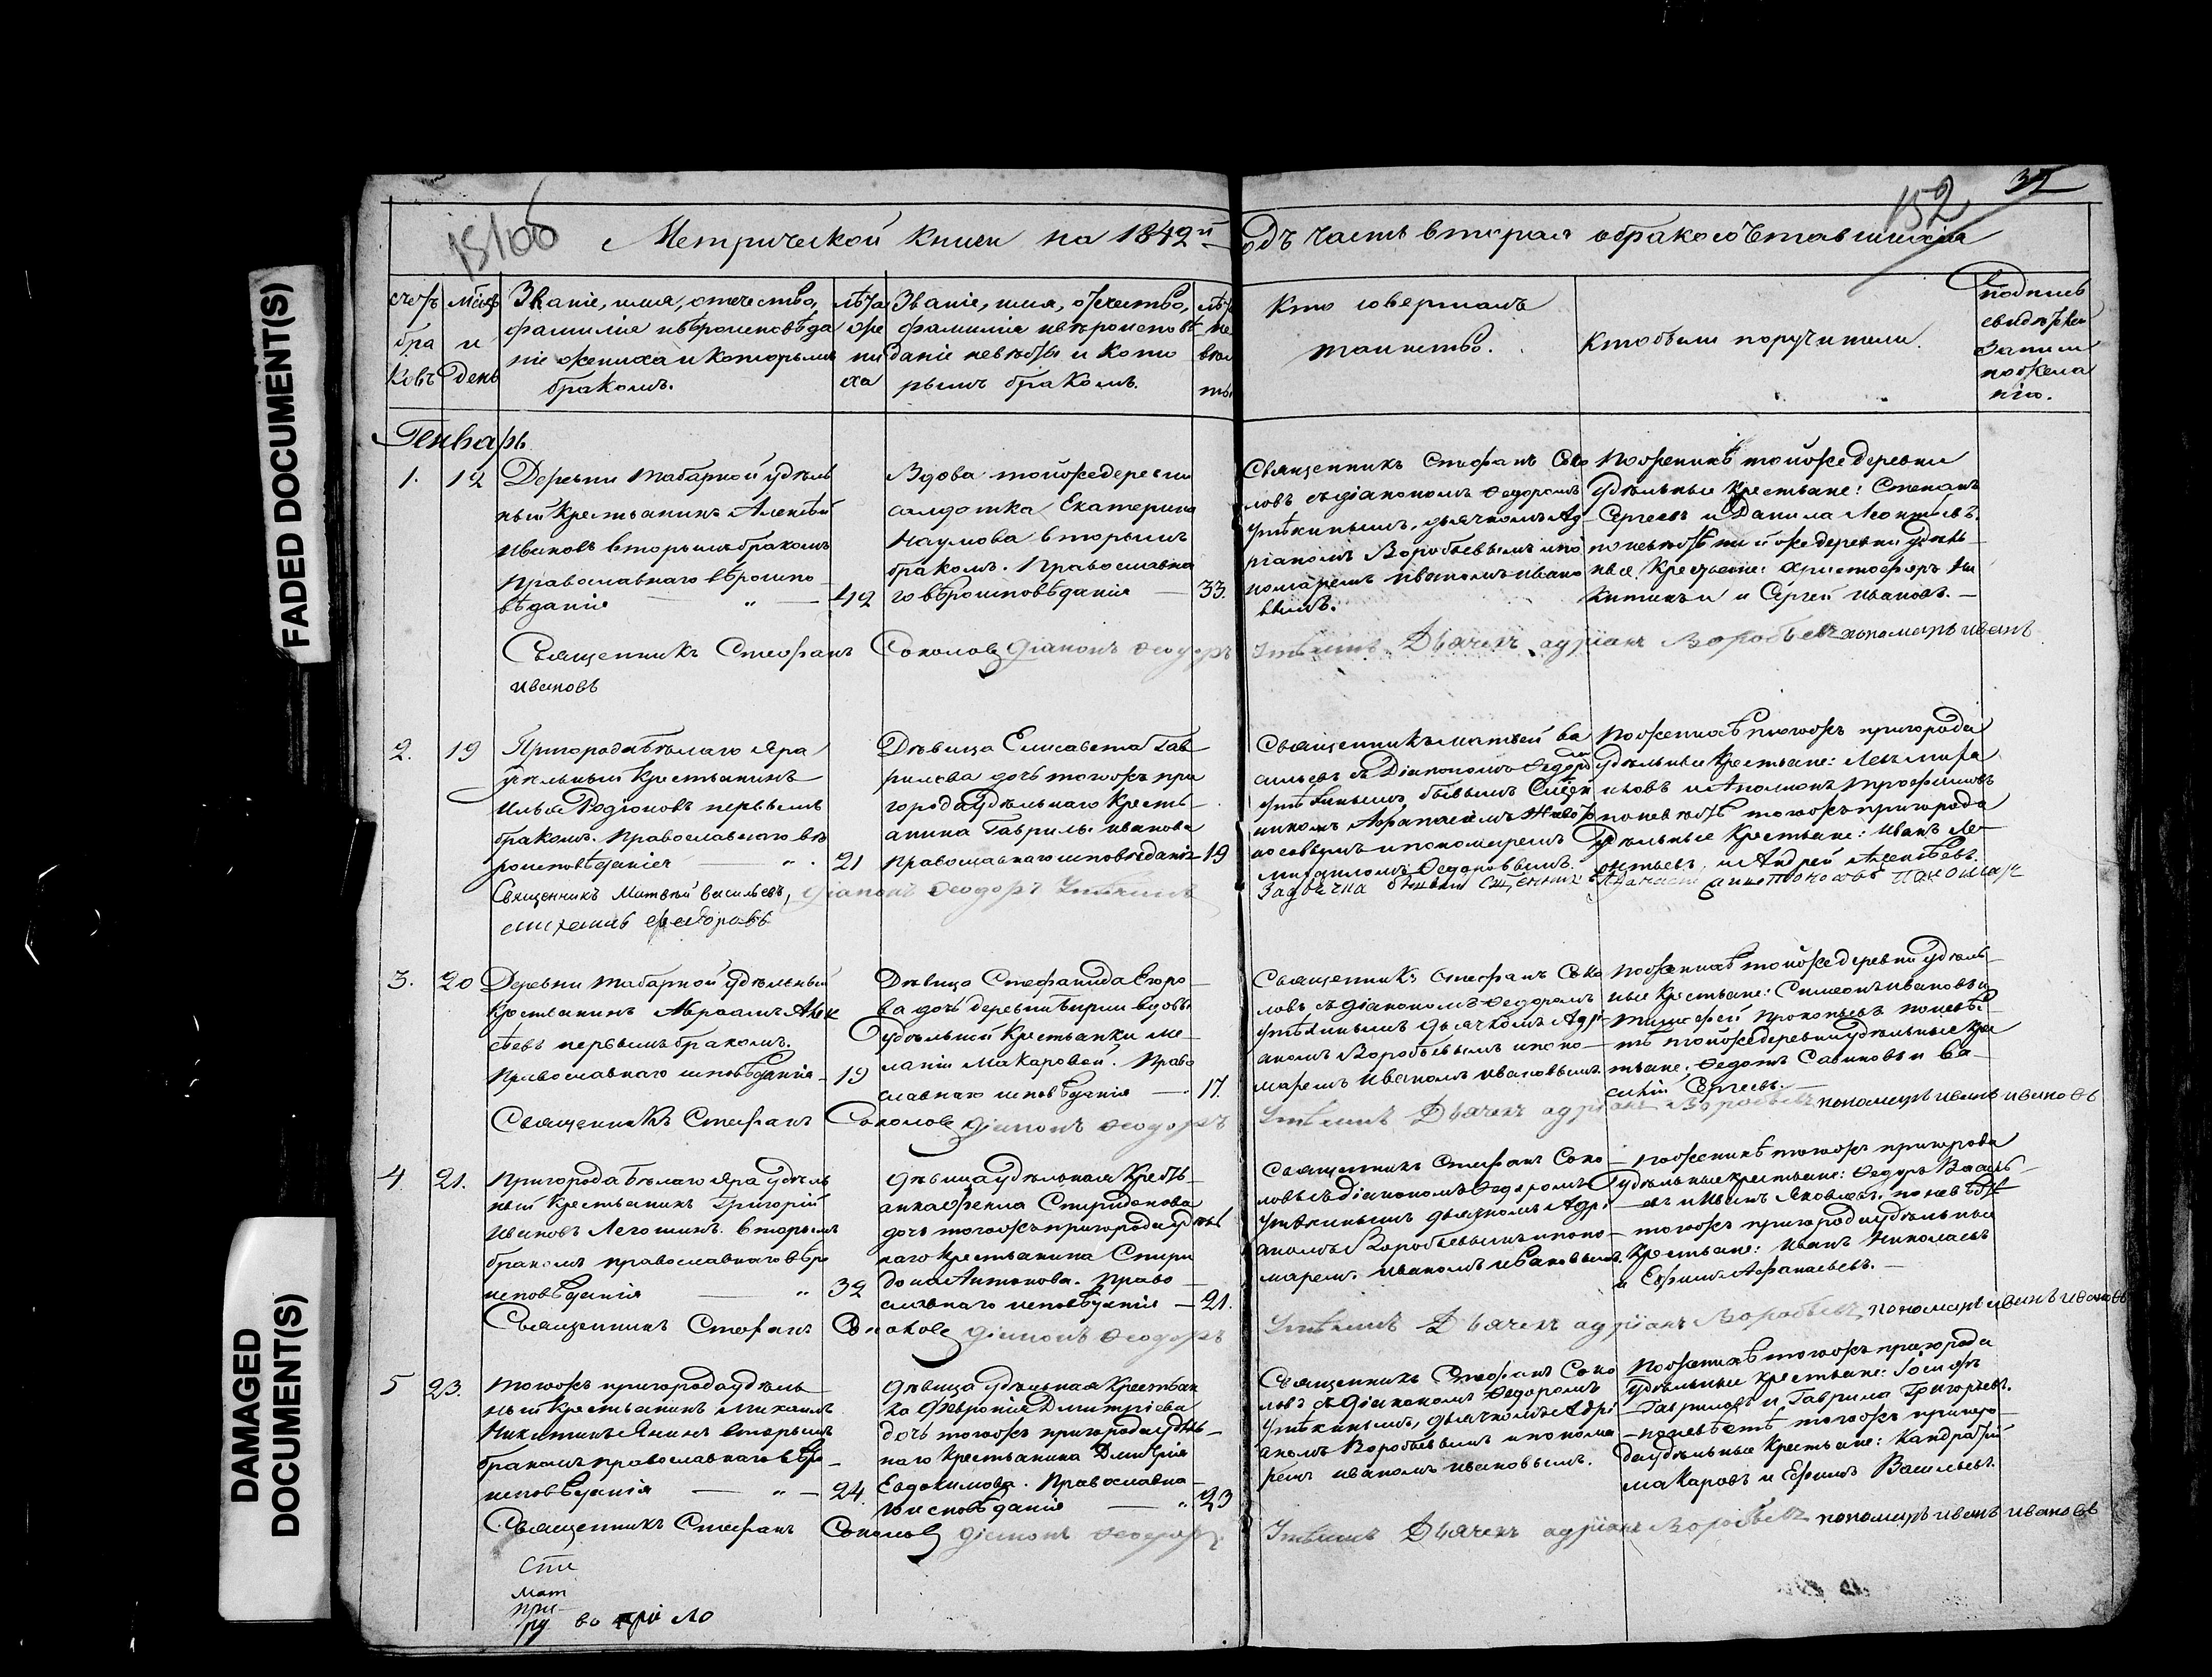 FADED DOCUMENT(S)
DAMAGED
DOCUMENT(S)
152
Метрической книги на 1842й
одъ часть вторая о бракосочетавшихся
счетъ
бра
ковъ
мѣсяцъ
и
день
Званіе, имя, отчество,
фамилія и вѣроисповѣда
ніе жениха и которымъ
бракомъ.
лѣта
же
ни
ха
Званіе, имя, отчество,
фамилія и вѣроисповѣ
даніе невѣсты и кото
рымъ бракомъ.
лѣ
не
вѣс
ты
Кто совершалъ
таинство.
Кто были поручители.
подпись
свидѣтелей
записи
по жела
нію.
Генварь
1.
12
Деревни Табарной удѣль
ный крестьянинъ Алексѣй
Ивановъ вторымъ бракомъ
Православнаго вѣроиспо
вѣданія
42
Вдова той же деревни
салдатка Екатерина
Наумова вторымъ
бракомъ. Православна
го вѣроисповѣданія
33.
Священникъ Стефанъ Соко
ловъ съ діакономъ Ѳедоромъ
Утѣхинымъ, дьячкомъ Ад
ріаномъ Воробьевымъ и по
номаремъ Иваномъ Ивано
вымъ.
По женихѣ той же деревни
удѣльные крестьяне: Степанъ
Сергеевъ и Данила Леонтьевъ.
по невѣстѣ той же деревни удѣль
ные крестьяне: Христофоръ Ни
китинъ и Сергей Ивановъ.
Священникъ Стефанъ Соколовъ діаконъ Ѳеодоръ Утѣхинъ Дьячекъ адріанъ Воробьевъ пономарь иванъ
ивановъ
2.
19
Пригорода Бѣлаго Яра
удѣльный крестьянинъ
Илья Родіоновъ первымъ
бракомъ. Православнаго вѣ
роисповѣданія
21
Дѣвица Елисавета Гав
рилова дочь тогожъ при
города удѣльнаго кресть
янина Гаврилы Иванова
Православнаго исповѣданія
19
Священникъ Матвей Ва
сильевъ съ Діакономъ Ѳедоромъ
Утѣхинымъ, бывшимъ Свящ
михаиломъ Ѳедоровымъ.
По женихѣ тогожъ пригорода
удѣльные крестьяне:
по невѣстѣ тогожъ пригорода
удѣльные крестьяне: Иванъ Ле
онтьевъ и Андрей Алексѣевъ.
Священникъ Матвей Васильевъ, діаконъ Ѳеодоръ Утѣхинъ
михаилъ федоровъ
3.
20
Деревни Табарной удѣльный
крестьянинъ Авраамъ Алек
сѣевъ первымъ бракомъ.
Православнаго исповѣданія
19
Дѣвица Стефанида Егоро
ва дочь деревни вдовы
удѣльной крестьянки Ме
ланіи Макаровой. Право
славнаго исповѣданія
17.
Священникъ Стефанъ Соко
ловъ съ діакономъ Ѳедоромъ
Утѣхинымъ дьячкомъ Адрі
аномъ Воробьевымъ и поно
маремъ Иваномъ Ивановымъ.
По женихѣ той же деревни удѣль
ные крестьяне: Симеонъ Ивановъ и
Тимофей Прокопьевъ по невѣс
тѣ той же деревни удѣльные кре
стьяне: Ѳедотъ Савиновъ и Ва
силій Сергеевъ.
Священникъ Стефанъ Соколовъ діаконъ Ѳеодоръ Утѣхинъ Дьячекъ адріанъ Воробьевъ пономарь иванъ ивановъ
4
21.
Пригорода Бѣлаго Яра удѣль
ный крестьянинъ Григорій
Ивановъ Легошинъ. вторымъ
бракомъ православнаго вѣро
исповѣданія
32
Дѣвица удѣльная кресть
анка Ѳекла Спиридонова
дочь тогожъ пригорода удѣль
наго крестьянина Спири
дона Антонова. Право
славнаго исповѣданія
21.
Священникъ Стефанъ Соко
ловъ съ Діакономъ Ѳедоромъ
Утѣхинымъ дьячкомъ Адрі
аномъ Воробьевымъ и поно
маремъ Иваномъ Ивановымъ.
По женихѣ тогожъ пригорода
удѣльные крестьяне: Ѳедоръ Василь
евъ и Иванъ Яковлевъ. по невѣстѣ
тогожъ пригорода удѣльные
крестьяне: Иванъ Николаевъ
и Ефимъ Афанасьевъ.
Священникъ Стефанъ Соколовъ діаконъ Ѳеодоръ Утѣхинъ Дьячекъ адріанъ Воробьевъ, пономарь иванъ ивановъ
5
23.
Тогожъ пригорода удѣль
ный крестьянинъ Михаилъ
Никитинъ Янинъ вторымъ
бракомъ православнаго вѣро
исповѣданія
24.
Дѣвица удѣльная крестьян
ка Февронія Дмитріева
дочь тогожъ пригорода удѣль
наго крестьянина Дмитрія
Евдокимова. Православна
го исповѣданія
23
Священникъ Стефанъ Соко
ловъ съ Діакономъ Ѳедоромъ
Утѣхинымъ, дьячкомъ Адрі
аномъ Воробьевымъ и понома
ремъ Иваномъ Ивановымъ.
По женихѣ тогожъ пригорода
удѣльные крестьяне: Іосифъ
Гавриловъ и Гаврила Григорьевъ.
по невѣстѣ тогожъ пригоро
да удѣльные крестьяне: Кандратій
Макаровъ и Ефимъ Васильевъ.
Священникъ Стефанъ Соколовъ діаконъ Ѳеодоръ Утѣхинъ Дьячекъ адріанъ Воробьевъ пономарь иванъ ивановъ
сти
мат
при
ру во при ло